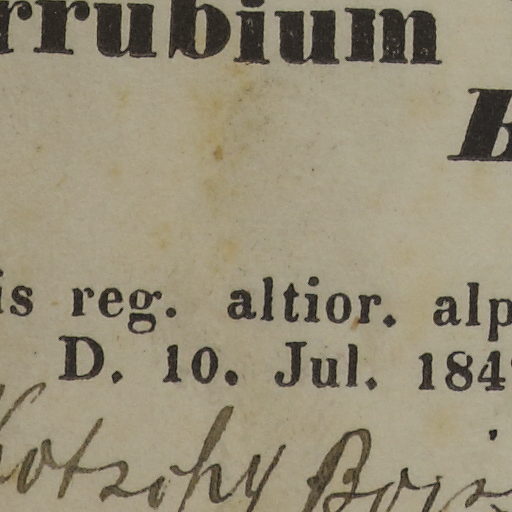 rrubium
B
is reg. altior. alp
D. 10. Jul. 184
Kotschy Boiss